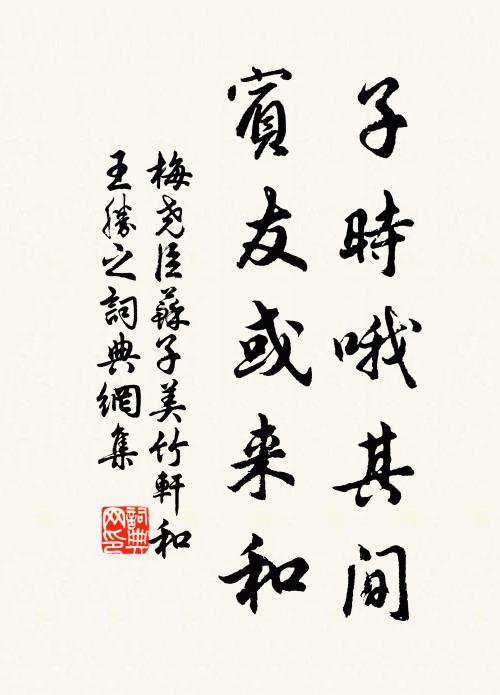 子時哦其間
賓友或来和
梅尧臣蘇子美竹軒和
王勝之詞典網集
詞典
网印